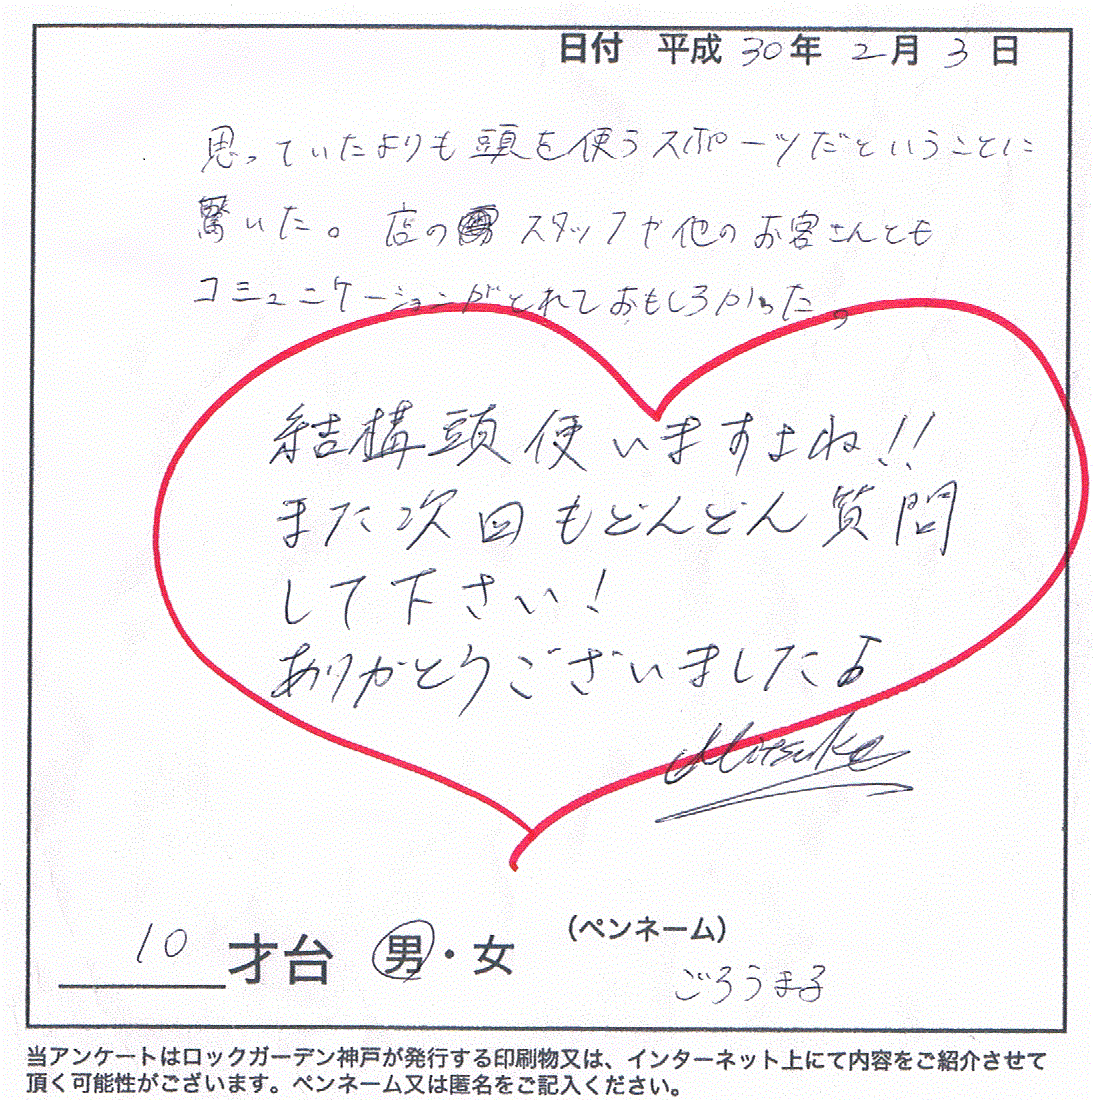 日付 平成 30年 2月 3日
思っていたよりも頭を使うスポーツだということに
驚いた。店のスタッフや他のお客さんとも
コミュニケーションがとれておもしろかった。
結構頭使いますよね!!
また次回もどんどん質問
して下さい!
ありがとうございました♪
Mitsuke
10才台 男・女 (ペンネーム)
ごろうまる
当アンケートはロックガーデン神戸が発行する印刷物又は、インターネット上にて内容をご紹介させて
頂く可能性がございます。ペンネーム又は匿名をご記入ください。